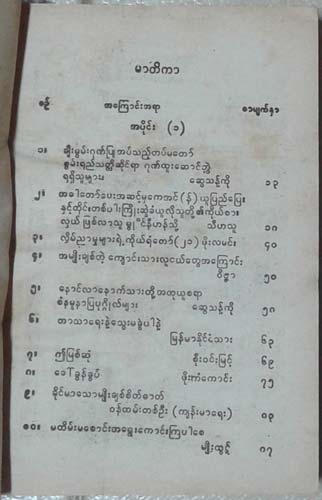 မာတိကာ
စဉ် အကြောင်းအရာ စာမျက်နှာ
အပိုင်း (၁)
၁။ ချီးမွမ်းဂုဏ်ပြုအပ်သည့်တပ်မတော်
စွမ်းရည်သတ္တိဆိုင်ရာ ဂုဏ်ထူးဆောင်ဘွဲ့
ရရှိသူများ ဆွေသန့်ကို ၁၃
၂။ အခါတော်ပေးအဆင့်မှ
နှင့်တိုင်းတစ်ပါး ကြိုးဆွဲခံယူလိုသူတို့၏ကိုယ်စား
လှယ် ဖြစ်လာသူ သီဟသူ ၁၈
၃။ လှိမ့်ညာမှုများရဲ့ကိုယ်ရံတော်(၂၁) ဖိုးလမင်း ၄၀
၄။ အမျိုးချစ်တဲ့ ကျောင်းသားလူငယ်တွေအကြောင်း
ဝိဇ္ဇာ ၅၁
၅။ နောင်လာနောက်သားတို့အတုယူစရာ
စံနမူနာပြပုဂ္ဂိုလ်များ ဆွေသန့်ကို ၅၈
၆။ တာသာရေးနဲ့သွေးမခွဲပါနဲ့
မြန်မာနိုင်ငံသား ၆၃
၇။ ဤမြစ်ဆုံ စိုးဝင်းမြင့် ၆၉
၈။ ဒေါ်ခွန်ခွပ် ဖိုးကံကောင်း ၇၅
၉။ ခိုင်မာသောမျိုးချစ်စိတ်ဓာတ်
ဝန်ထမ်းတစ်ဦး (ကျန်းမာရေး) ၈၃
၁၀။ မထိမ်းမစောင်းအရွေးကောင်းကြပါစေ
မျိုးထွဋ် ၈၇